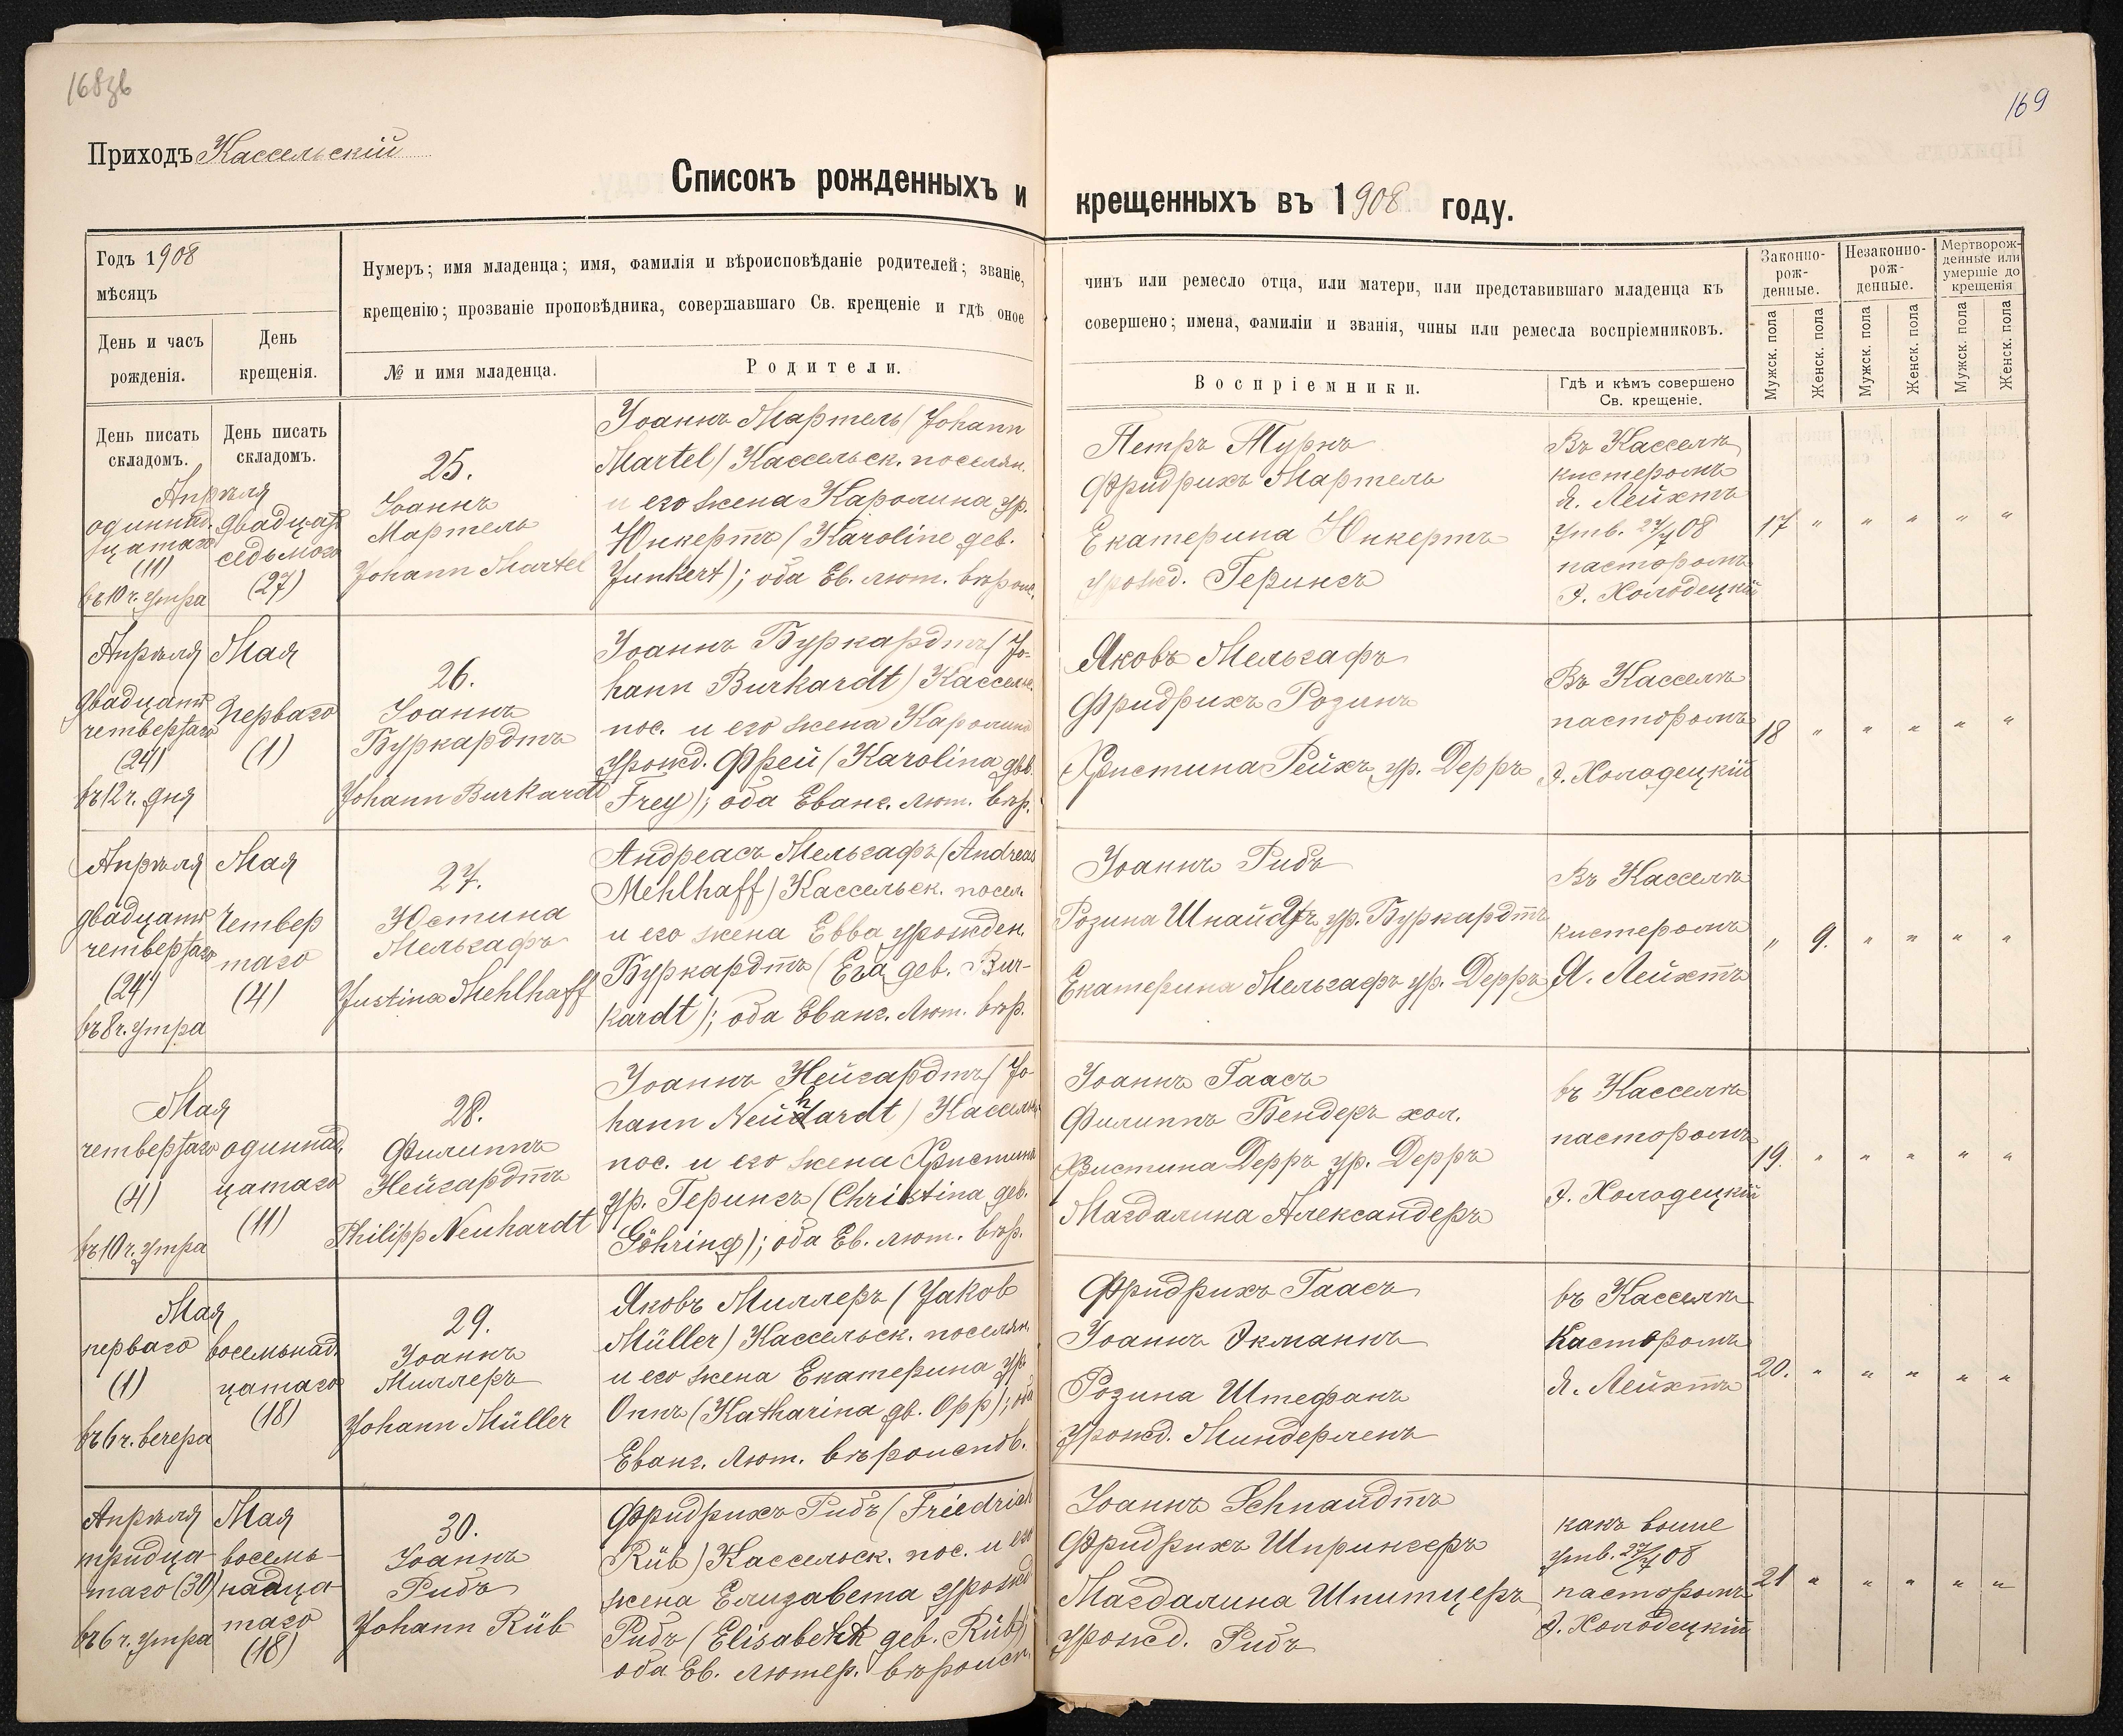 168зв
169
Приходъ Кассельскій
Списокъ рожденныхъ и крещенныхъ въ 1908 году.
Годъ 1908
мѣсяцъ
День и часъ
рожденія.
День
крещенія.
Нумеръ; имя младенца; имя, фамилія и вѣроисповѣданіе родителей; званіе,
крещенію; прозваніе проповѣдника, совершавшаго Св. крещеніе и гдѣ оное
№ и имя младенца.
Родители.
чинъ или ремесло отца, или матери, или представившаго младенца къ
совершено; имена, фамиліи и званія, чины или ремесла воспріемниковъ.
Воспріемники.
Гдѣ и кѣмъ совершено
Св. крещеніе.
Законно-
рож-
денные.
Незаконно-
рож-
денные.
Мертворож-
денные или
умершіе до
крещенія
Мужск. пола
Женск. пола
Мужск. пола
Женск. пола
Мужск. пола
Женск. пола
День писать
складомъ.
День писать
складомъ.
Апрѣля
одиннад-
цатаго
(11)
въ 10 ч. утра
двадцать
седьмого
(27)
25.
Іоаннъ
Мартель
Johann Martel
Іоаннъ Мартель (Johann
Martel) Кассельск. поселян.
и его жена Каролина ур.
Юнкертъ (Karoline geb.
Junkert); оба Ев. лют. вѣроис.
Петръ Туркъ
Фридрихъ Мартель
Екатерина Юнкертъ
урожд. Герингъ
Въ Касселѣ
кистеромъ
Я. Лейхтъ
Утв. 27/4 08
пасторомъ
Э. Холодецкій
17 " " " " "
Апрѣля
двадцать
четвертаго
(24)
въ 12 ч. дня
Мая
перваго
(1)
26.
Іоаннъ
Буркардтъ
Johann Burkardt
Іоаннъ Буркардтъ (Jo-
hann Burkardt) Кассельс.
пос. и его жена Каролина
урожд. Фрей (Karolina geb.
Frey); оба Еванг. лют. вѣр.
Яковъ Мельгафъ
Фридрихъ Розинъ
Христина Рейхъ, ур. Дерръ
Въ Касселѣ
пасторомъ
Э. Холодецкій
18 " " " " "
Апрѣля
двадцать
четвертаго
(24)
въ 8 ч. утра
Мая
четвер
таго
(4)
27.
Юстина
Мельгафъ
Justina Mehlhaff
Андреасъ Мельгафъ (Andreas
Mehlhaff) Кассельск. посел.
и его жена Евва урожден.
Буркардтъ (Eva geb. Bur-
kardt); оба Еванг. Лют. вѣр.
Іоаннъ Рибъ
Розина Шнайдръ ур. Буркардтъ
Екатерина Мельгафъ ур. Дерръ
Въ Касселѣ
кистеромъ
Я. Лейхтъ
" 9. " " " "
Мая
четвертаго
(4)
въ 10 ч. утра
одиннад-
цатаго
(11)
28.
Филиппъ
Нейгардтъ
Philipp Neuhardt
Іоаннъ Нейгардтъ (Jo-
hann Neuhardt) Кассельс.
пос. и его жена Христина
ур. Герингъ (Christina geb.
Göhring); оба Ев. лют. вѣр.
Іоаннъ Гаасъ
Филиппъ Бендеръ хол.
Христина Дерръ ур. Дерръ
Магдалина Александеръ
въ Касселѣ
пасторомъ
Э. Холодецкій
19. " " " " "
Мая
перваго
(1)
въ 6 ч. вечера
восемнад-
цатаго
(18)
29.
Іоаннъ
Миллеръ
Johann Müller
Яковъ Миллеръ (Jakob
Müller) Кассельск. поселян.
и его жена Екатерина ур.
Оппъ (Katharina gb. Opp); оба
Еванг. Лют. вѣроисповѣ.
Фридрихъ Гаасъ
Іоаннъ Экманнъ
Розина Штефанъ
Урожд. Миндерленъ
въ Касселѣ
Касторомъ
Я. Лейхтъ
20. " " " " "
Апрѣля
тридца-
таго (30)
въ 6 ч. утра
Мая
восемь-
надца-
таго
(18)
30.
Іоаннъ
Рибъ
Johann Rüb
Фридрихъ Рибъ (Friedrich
Rüb) Кассельск. пос. и его
жена Елизавета урожд.
Рибъ (Elisabeth geb. Rüb)
оба Ев. лютер. вѣроисп.
Іоаннъ Schнаидтъ
Фридрихъ Шпрингеръ
Магдалина Шпитцеръ
урожд. Рибъ
какъ выше
утв. 27/4 08
пасторомъ
Э. Холодецкій
21 " " " " "